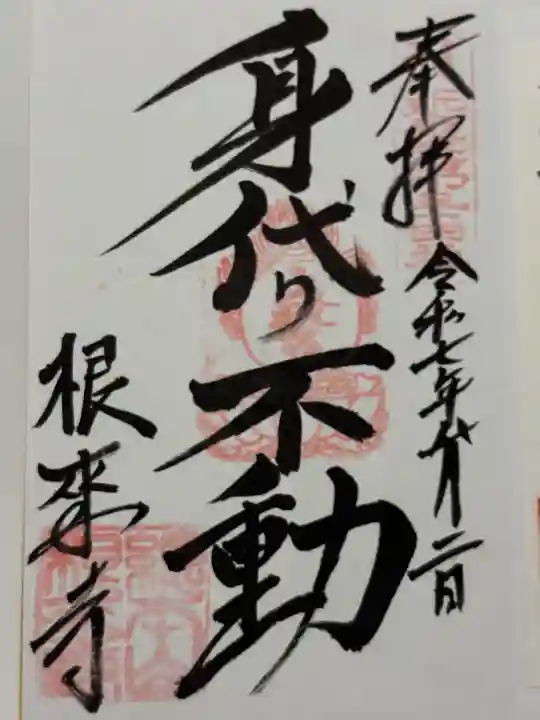 奉拝 令和七年 月二日
身代り不動
根来寺